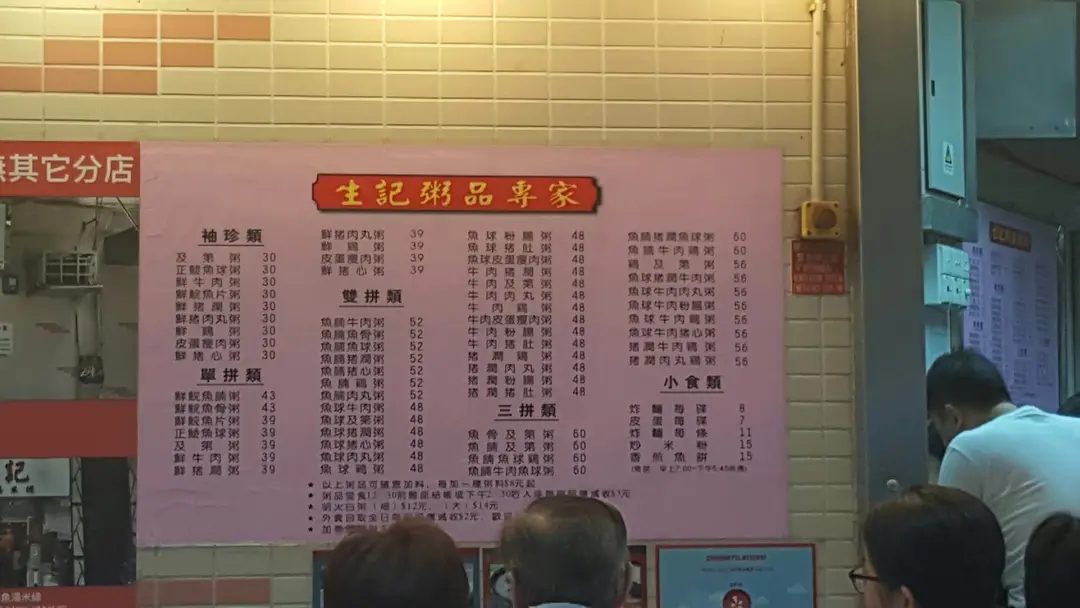 無其它分店
生記粥品專家
袖珍類
及第粥 30
正鯪魚球粥 30
鮮牛肉粥 30
鮮鯇魚片粥 30
鮮豬潤粥 30
鮮豬肉丸粥 30
鮮鷄粥 30
皮蛋瘦肉粥 30
鮮豬心粥 30
單拼類
鮮鯇魚腩粥 43
鮮鯇魚骨粥 43
鮮鯇魚片粥 39
正鯪魚球粥 39
及第粥 39
鮮牛肉粥 39
鮮豬潤粥 39
鮮豬肉丸粥 39
鮮鷄粥 39
皮蛋瘦肉粥 39
鮮豬心粥 39
雙拼類
魚腩牛肉粥 52
魚腩魚骨粥 52
魚腩魚球粥 52
魚腩豬潤粥 52
魚腩豬心粥 52
魚腩鷄粥 52
魚腩肉丸粥 52
魚球牛肉粥 48
魚球及第粥 48
魚球豬潤粥 48
魚球豬心粥 48
魚球肉丸粥 48
魚球鷄粥 48
魚球粉腸粥 48
魚球豬肚粥 48
魚球皮蛋瘦肉粥 48
牛肉豬潤粥 48
牛肉及第粥 48
牛肉肉丸粥 48
牛肉鷄粥 48
牛肉皮蛋瘦肉粥 48
牛肉粉腸粥 48
牛肉豬肚粥 48
豬潤鷄粥 48
豬潤肉丸粥 48
豬潤粉腸粥 48
豬潤豬肚粥 48
三拼類
魚骨及第粥 60
魚腩及第粥 60
魚腩魚球鷄粥 60
魚腩牛肉魚球粥 60
魚腩豬潤魚球粥 60
魚腩牛肉鷄粥 60
鷄及第粥 56
魚球豬潤牛肉粥 56
魚球牛肉肉丸粥 56
魚球牛肉粉腸粥 56
魚球牛肉鷄粥 56
魚球牛肉豬心粥 56
豬潤牛肉鷄粥 56
豬潤肉丸鷄粥 56
小食類
炸麵每碟 8
皮蛋每碟 7
炸麵每條 11
炒米粉 15
香煎魚餅 15
★ 以上粥品可隨意加料，每加一種粥料$8元起
★ 粥品堂食
★ 明火白粥（細）$12元，（大）$14元
★ 外賣自取全日
★ 加
記
魚湯米線